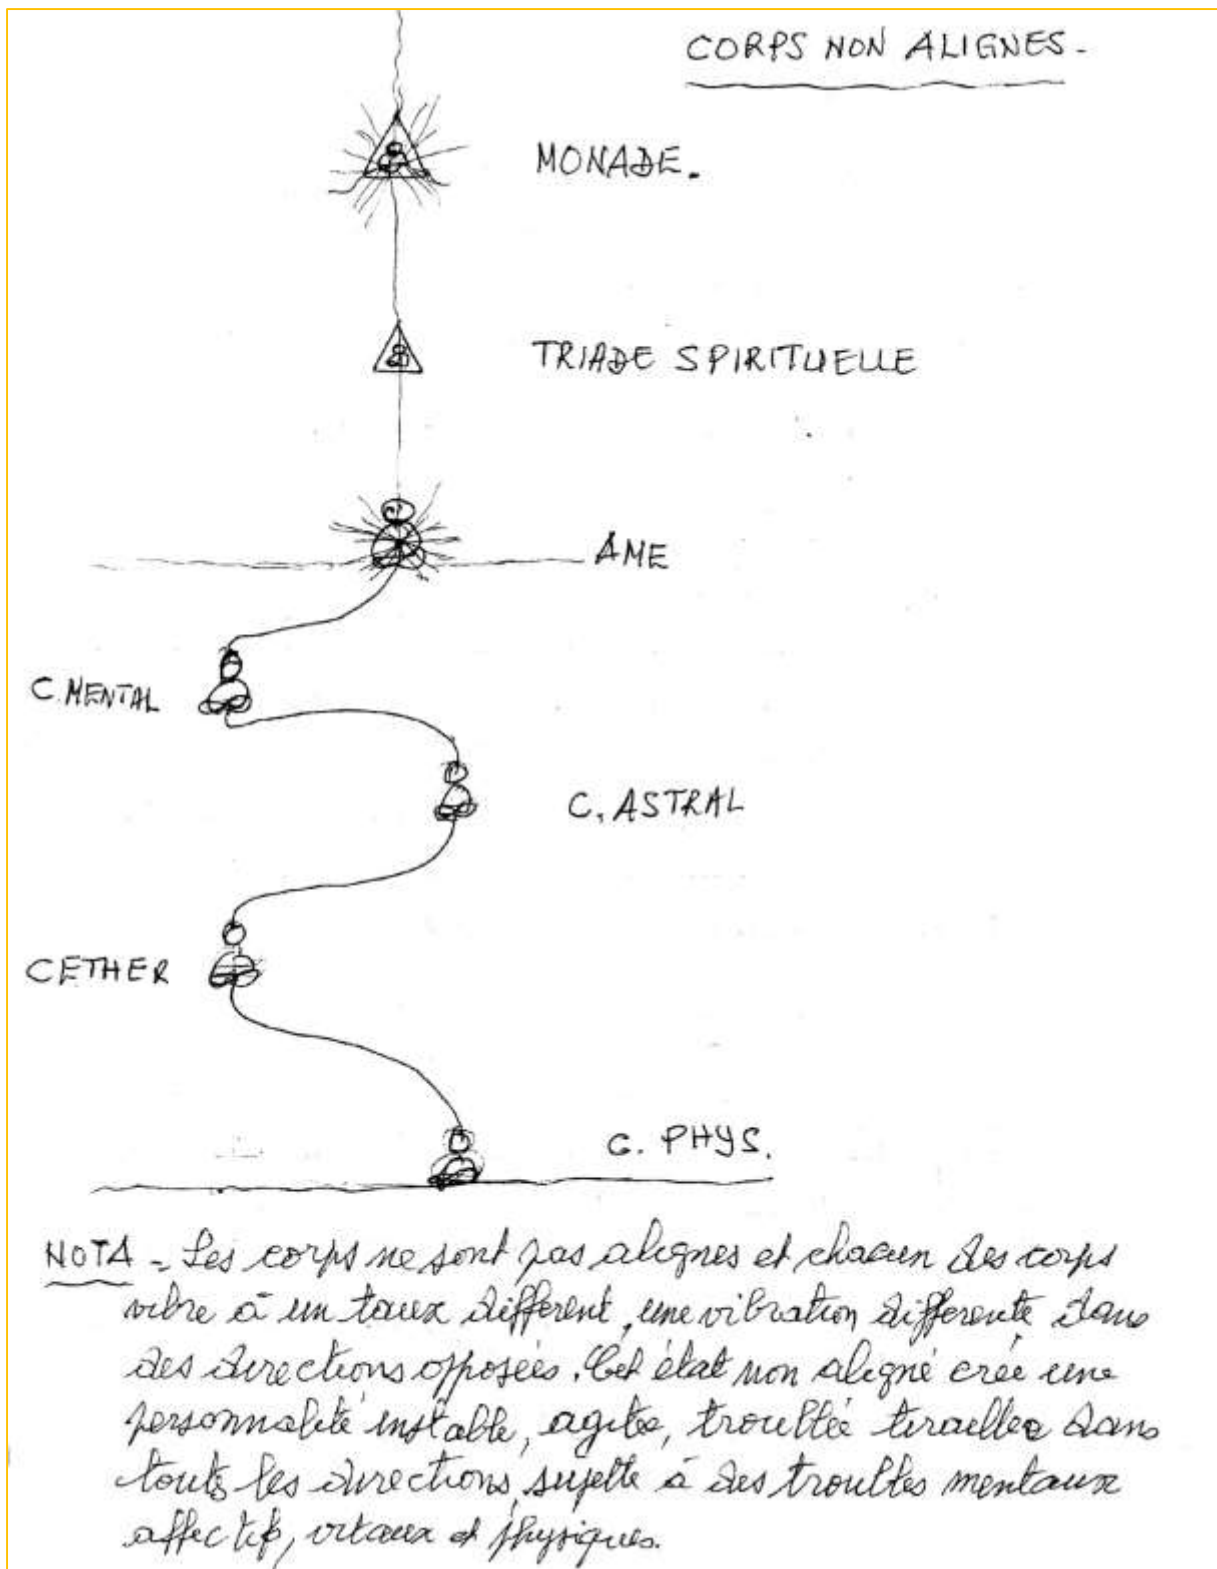 CORPS NON ALIGNES.
MONADE.
TRIADE SPIRITUELLE
AME
C. MENTAL
C. ASTRAL
CETHER
C. PHYS.
NOTA - Les corps ne sont pas alignes et chacun des corps
vibre à un taux différent, une vibration différente dans
des directions opposées. Cet état non aligné crée une
personnalité instable, agitée, troublée tiraillée dans
toutes les directions, sujette à des troubles mentaux
affectifs, vitaux et physiques.